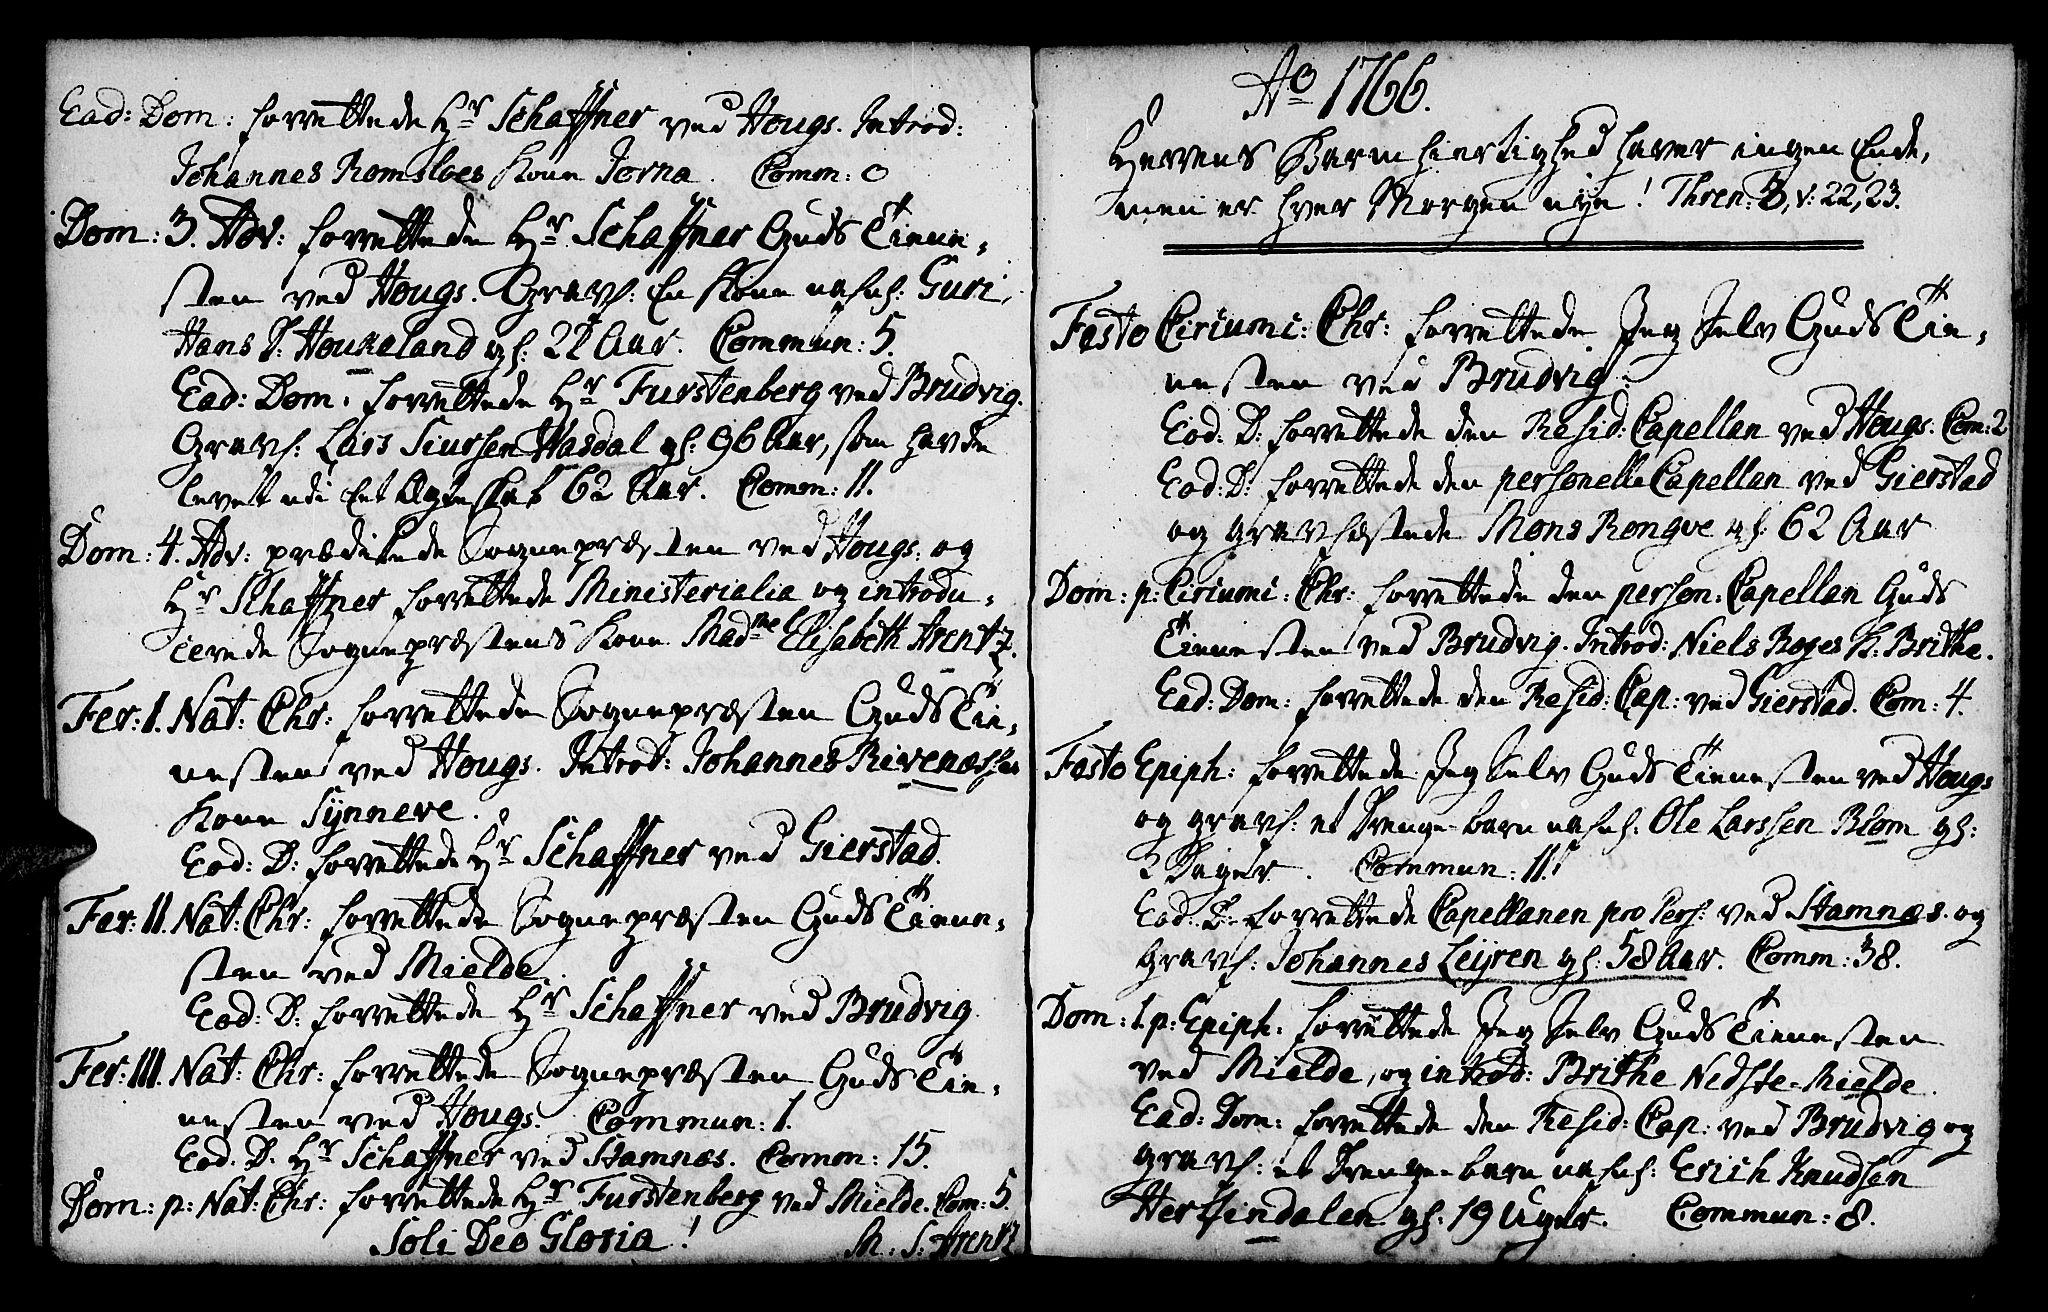 Ead: Dom: forrettede Hr Schaffner ved Hougs. Introd:
Johannes Romsloes Kone Jorna. Comm: 0
Dom: 3. Adv: forrettede Hr Schaffner Guds Tienn-
sten ved Hougs. Gravf: En Kone nafnl: Guri
Hans D: Houkeland gl: 22 Aar. Commun: 5.
Ead: Dom: forrettede Hr Furstenberg ved Brudvig.
Gravf: Lars Siursen Wasdal gl: 96 Aar, som havde
levet udi Et Egteskab 62 Aar. Comm: 11.
Dom: 4. Adv: prædikede Sognepræsten ved Hougs, og
Hr Schaffner forrettede Ministerialia og introdu-
cerede Sognepræstens Kone Madme Elisabeth Arentz.
Fer: I. Nat: Chr: forrettede Sognepræsten Guds Tie-
nesten ved Hougs. Introd: Johannes Rivenæsses
Kone Sÿnneve.
Eod: D: forrettede Hr Schaffner ved Gierstad.
Fer: II. Nat: Chr: forrettede Sognepræsten Guds Tienn-
sten ved Mielde.
Eod: D: forrettede Hr Schaffner ved Brudvig.
Fer: III. Nat: Chr: forrettede Sognepræsten Guds Tie-
nesten ved Hougs. Commun: 1.
Eod. D. Hr Schaffner ved Stamnæs. Comm: 15.
Dom: p: Nat: Chr: forrettede Hr Furstenberg ved Mielde. Com: 5.
Soli Deo Gloria! M. S. Arentz
Ao 1766.
Herrens Barmhiertighed haver ingen Ende,
men er hver Morgen nye! Thren: 3, v: 22, 23.
Festo Circumci: Chr: forrettede Jeg Selv Guds Tie-
nesten ved Brudvig.
Eod: D: forrettede den Resid: Capellan ved Hougs. Com: 2
Eod: D: forrettede den personelle Capellan ved Gierstad
og gravfæstede Mons Rongve gl: 62 Aar
Dom: p: Circumci: Chr: forrettede den person: Capellan Guds
Tienesten ved Brudvig. Introd: Niels Roses K. Brithe.
Ead: Dom: forrettede den Resid: Cap: ved Gierstad. Com: 4.
Festo Epiph: forrettede Jeg Selv Guds Tienesten ved Hougs
og gravf: et Drenge-barn nafnl: Ole Larssen Blom gl:
2 Dager. Commun: 11.
Eod: D: forrettede Capellanen pro Pers: ved Stamnæs. og
Gravf: Johannes Leÿren gl: 58 Aar. Comm: 38.
Dom: 1. p: Epiph: forrettede Jeg Selv Guds Tienesten
ved Mielde, og introd: Brithe Nedste-Mielde.
Ead: Dom: forrettede den Resid: Cap: ved Brudvig og
gravf: et Drenge-barn nafnl: Erich Knudsen
Herfindalen gl: 19 Uger. Commun: 8.